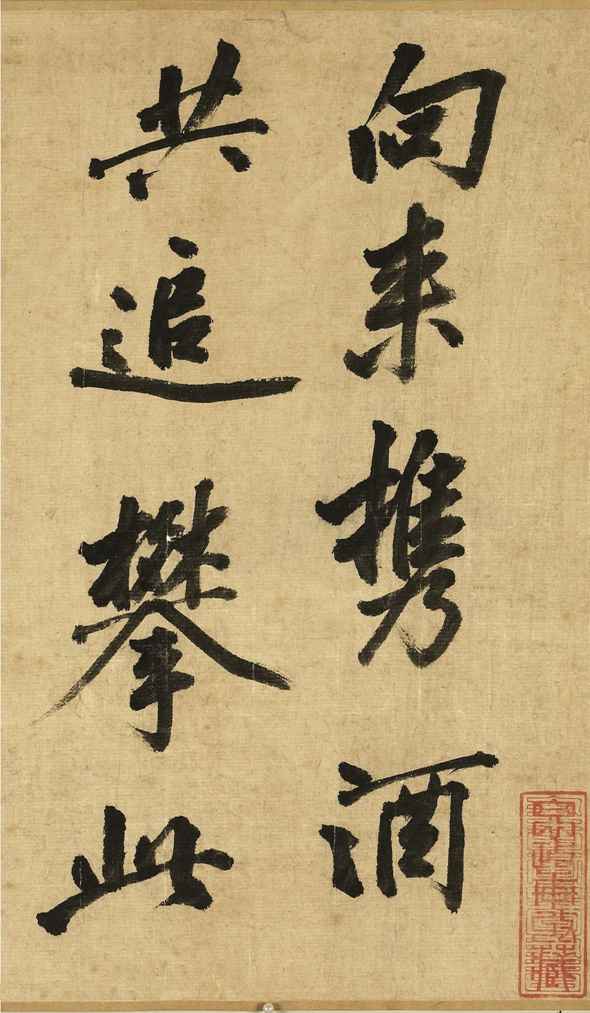 向来携酒
共追攀此